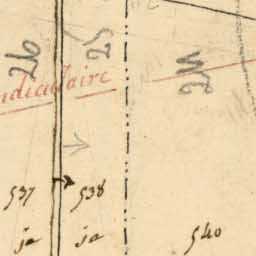 26 25 24
ndiculaire
537 538 540
ja ja